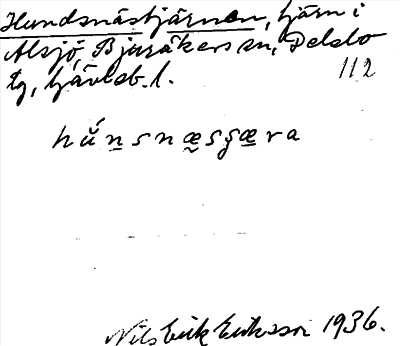 Hundsnästjärnen, tjärn i
Alsjö, Bjuråkers sn, Delsbo
tg, Gävleb. l.
112
hŭ́n̠snæ̰sʂæ̠ra
Nils Erik Eriksson 1936.